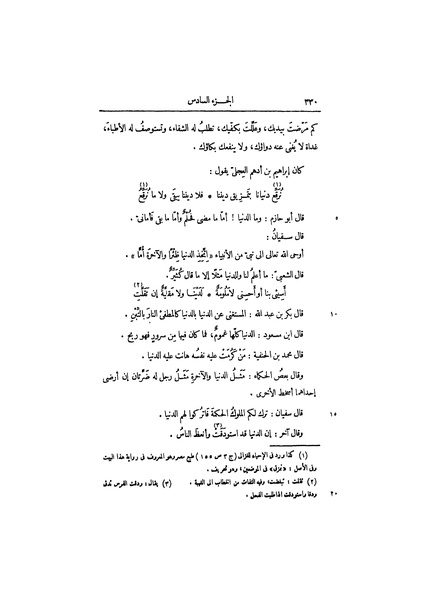 ٣٣٠ الجزء السادس
كم مَرّضتَ بيديك، وعلَّلتَ بكفّيك، تطلبُ له الشفاء، وتستوصفُ له الأطباء،
غداة لا يُغنى عنه دواؤك، ولا ينفعك بكاؤك.
كان إبراهيم بن أدهم العِجلىّ يقول :
نُرَقِّع(١) دنيانا بتمزيق ديننا * فلا ديننا يبقى ولا ما نُرقِّع(١)
٥ قال أبو حازم : وما الدنيا ! أمّا ما مضى فحُلْمٌ وأمّا ما بقى فأمانىّ .
قال سفيان :
أوحى الله تعالى الى نبىّ من الأنبياء «اتَّخِذِ الدنيا ظِئْرًا والآخرةَ أُمًّا» .
قال الشعبىّ : ما أعلم لنا وللدنيا مَثَلًا إلا ما قال كُثَيّر :
أسِيئى بنا أو أحسِنى لا ملُومةٌ * لَدَيْنا ولا مَقْلِيَّةٌ إن تَقَلَّتِ(٢)
١٠ قال بكر بن عبد الله : المستغنى عن الدنيا بالدنيا كالمطفئ النارَ بالتِّبْن .
قال ابن مسعود : الدنيا كلّها غمومٌ، فما كان فيها من سرور فهو ربح .
قال محمد بن الحنفية : مَنْ كَرُمَتْ عليه نفسُه هانت عليه الدنيا .
وقال بعضُ الحكماء : مَثَلُ الدنيا والآخرةِ مَثَلُ رجلٍ له ضَرَّتان إن أرضى
إحداهما أسخط الأخرى .
١٥ قال سفيان : ترك لكم الملوكُ الحكمةَ فاتركوا لهم الدنيا .
وقال آخر : إن الدنيا قد استودقتْ(٣) وأنعظَ الناسُ .
(١) كذا ورد فى الإحياء للغزالى (ج ٣ ص ١٥٥) طبع مصر وهو المعروف فى رواية هذا البيت
وفى الأصل : «نمزق» فى الموضعين، وهو تحريف .
(٢) تقلت : تبغضت، وفيه التفات من الخطاب الى الغيبة . (٣) يقال : ودقت الفرس تدق
٢٠ ودقا واستودقت اذا طلبت الفحل .